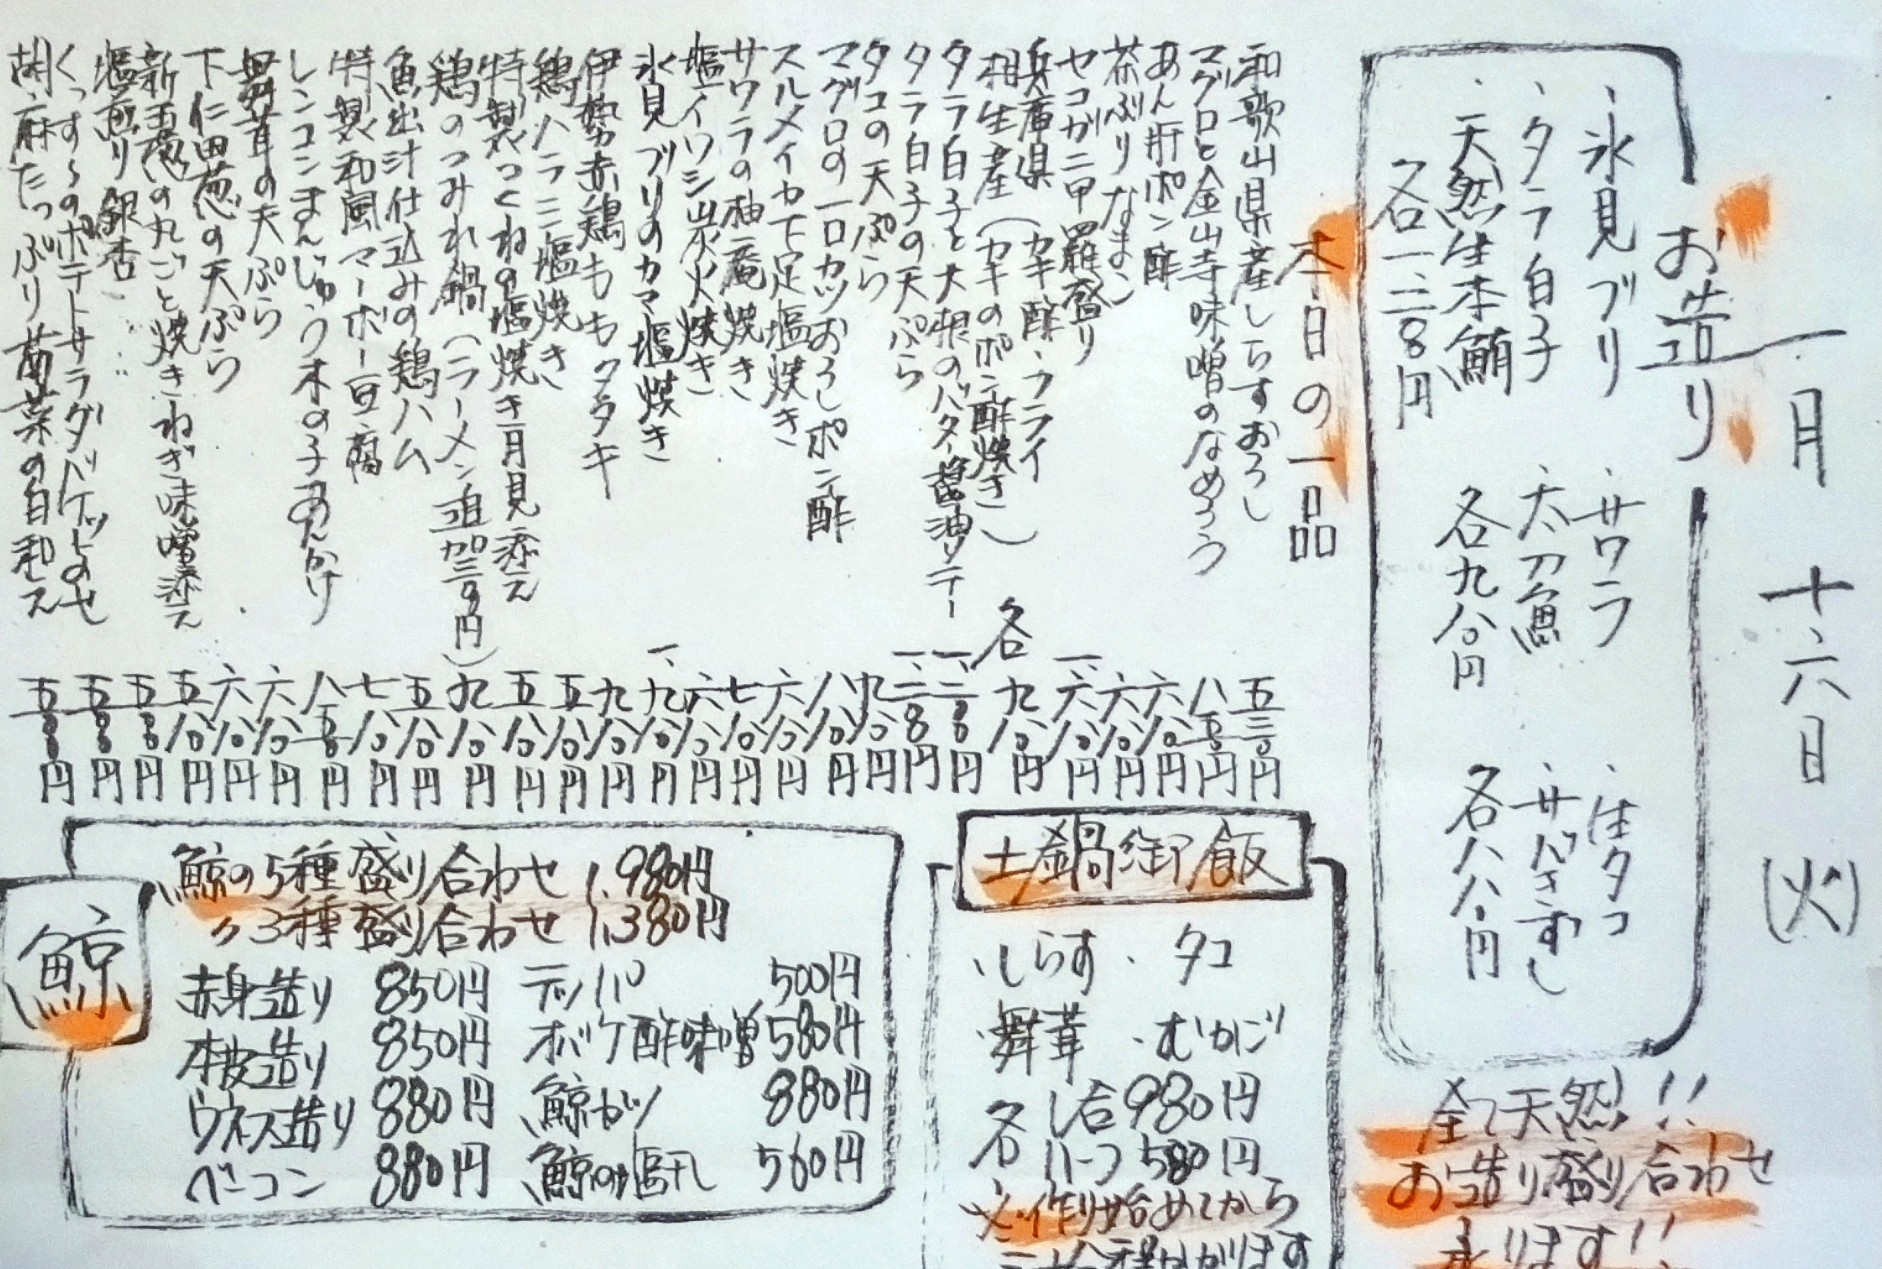 一月十六日(火)
お造り
・氷見ブリ
・タラ白子
・天然生本鮪
各一、二八〇円
・サワラ
・太刀魚
各九八〇円
・生タコ
・サバきずし
各八八〇円
全て天然!!
お造り盛り合わせ
承ります!!
本日の一品
和歌山県産しらすおろし 五三〇円
マグロと金山寺味噌のなめろう 八五〇円
あん肝ポン酢 六八〇円
茶ぶりなまこ 六八〇円
セコガニ甲羅盛り 一、六八〇円
兵庫県 (カキ酢・フライ
相生産 (カキのポン酢焼き) 各九八〇円
タラ白子と大根のバター醤油ソテー 一、二八〇円
タラ白子の天ぷら 一、二八〇円
タコの天ぷら 九八〇円
マグロの一口カツおろしポン酢 八八〇円
スルメイカ下足塩焼き 六八〇円
サワラの柚庵焼き 七八〇円
塩イワシ炭火焼き 六八〇円
氷見ブリのカマ塩焼き 一、九八〇円
伊勢赤鶏ももタタキ 九八〇円
鶏ハラミ塩焼き 五八〇円
特製つくねの塩焼き月見添え 五八〇円
鶏のつみれ鍋(ラーメン追加三〇〇円) 九八〇円
魚出汁仕込みの鶏ハム 五八〇円
特製和風マーボー豆腐 七八〇円
レンコンまんじゅう木の子あんかけ 八五〇円
舞茸の天ぷら 六八〇円
下仁田葱の天ぷら 六八〇円
新玉葱の丸ごと焼きねぎ味噌添え 五八〇円
塩煎り銀杏 五五〇円
くっす～のポテトサラダバケットのせ 五五〇円
胡麻たっぷり菊菜の白和え 五五〇円
土鍋御飯
・しらす ・タコ
・舞茸 ・むかご
各 1合 980円
各 ハーフ 580円
※作り始めてから
三十分程かかります
鯨
鯨の5種盛り合わせ 1,980円
〃3種盛り合わせ 1,380円
赤身造り 850円 テッパ 500円
本皮造り 850円 オバケ酢味噌 580円
ウネス造り 880円 鯨カツ 880円
ベーコン 880円 鯨の塩干し 560円